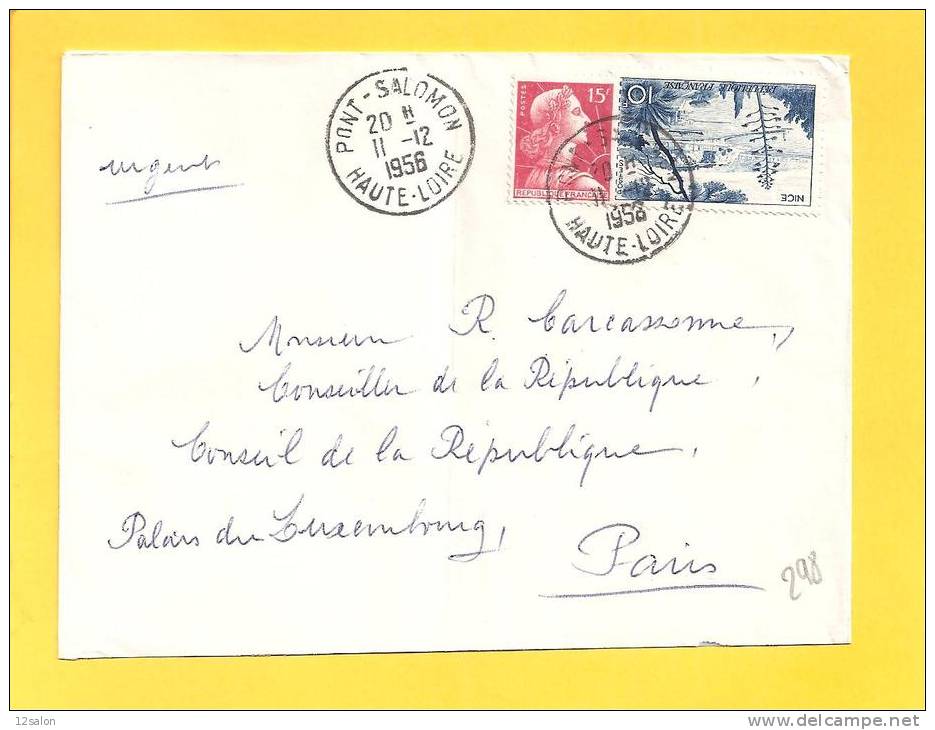 urgent
PONT-SALOMON
20 H
11 -12
1956
HAUTE-LOIRE
POSTES
15F
REPUBLIQUE FRANÇAISE
10
REPUBLIQUE FRANÇAISE
NICE
1956
HAUTE-LOIRE
Monsieur R. Carcassonne,
Conseiller de la République,
Conseil de la République,
Palais du Luxembourg,
Paris
298
12salon
www.delcampe.net